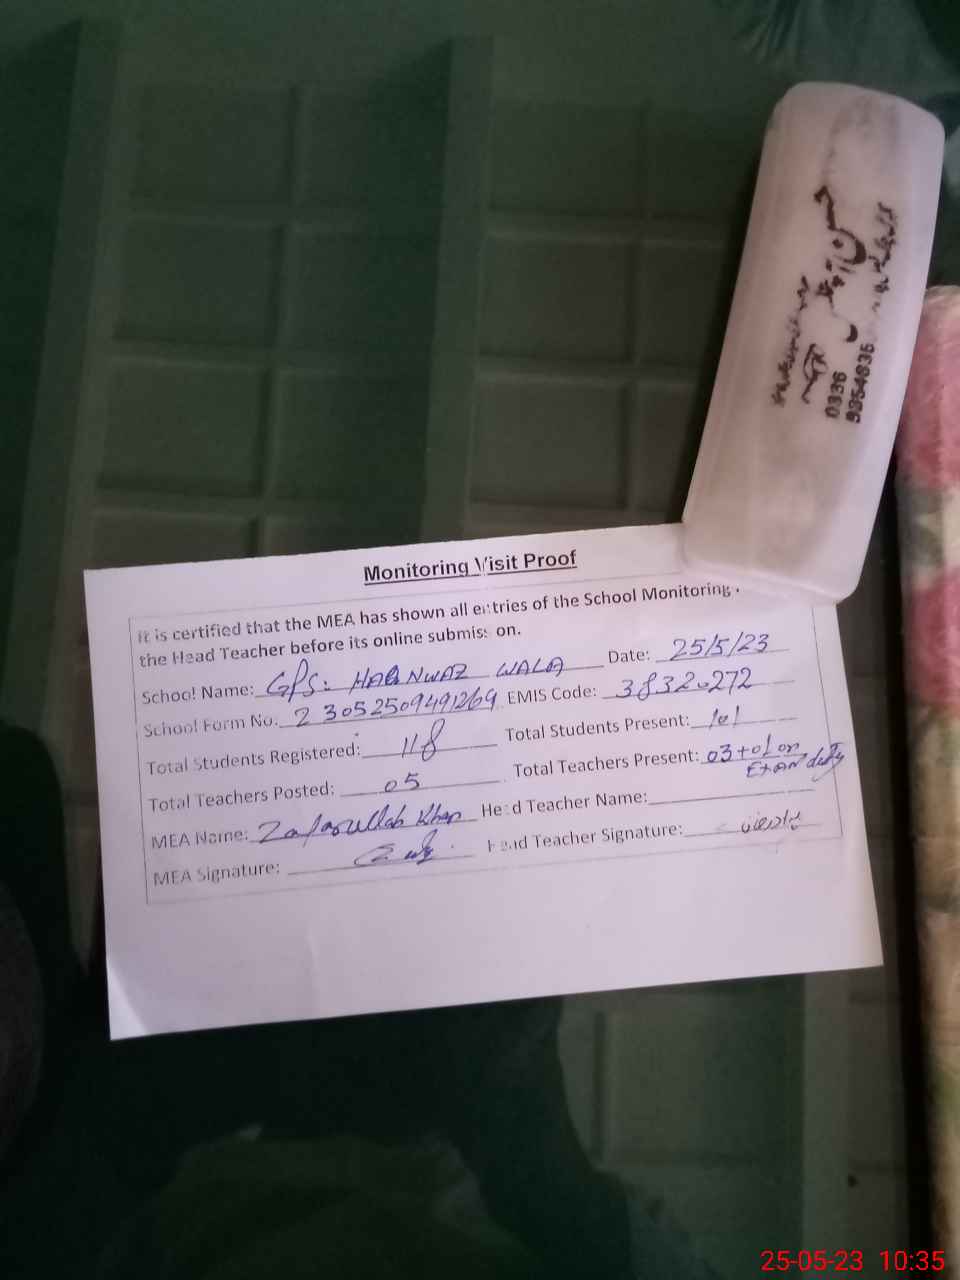 Monitoring Visit Proof
It is certified that the MEA has shown all entries of the School Monitoring
the Head Teacher before its online submission.
School Name: GPS: HAQ NWAZ WALA Date: 25/5/23
School Form No: 2 3052509491269 EMIS Code: 38320272
Total Students Registered: 118 Total Students Present: 101
Total Teachers Posted: 05 Total Teachers Present: 03+01 on
EXAM duty
MEA Name: Zafarullah Khan Head Teacher Name:
MEA Signature: Head Teacher Signature:
0336
9354836
25-05-23 10:35